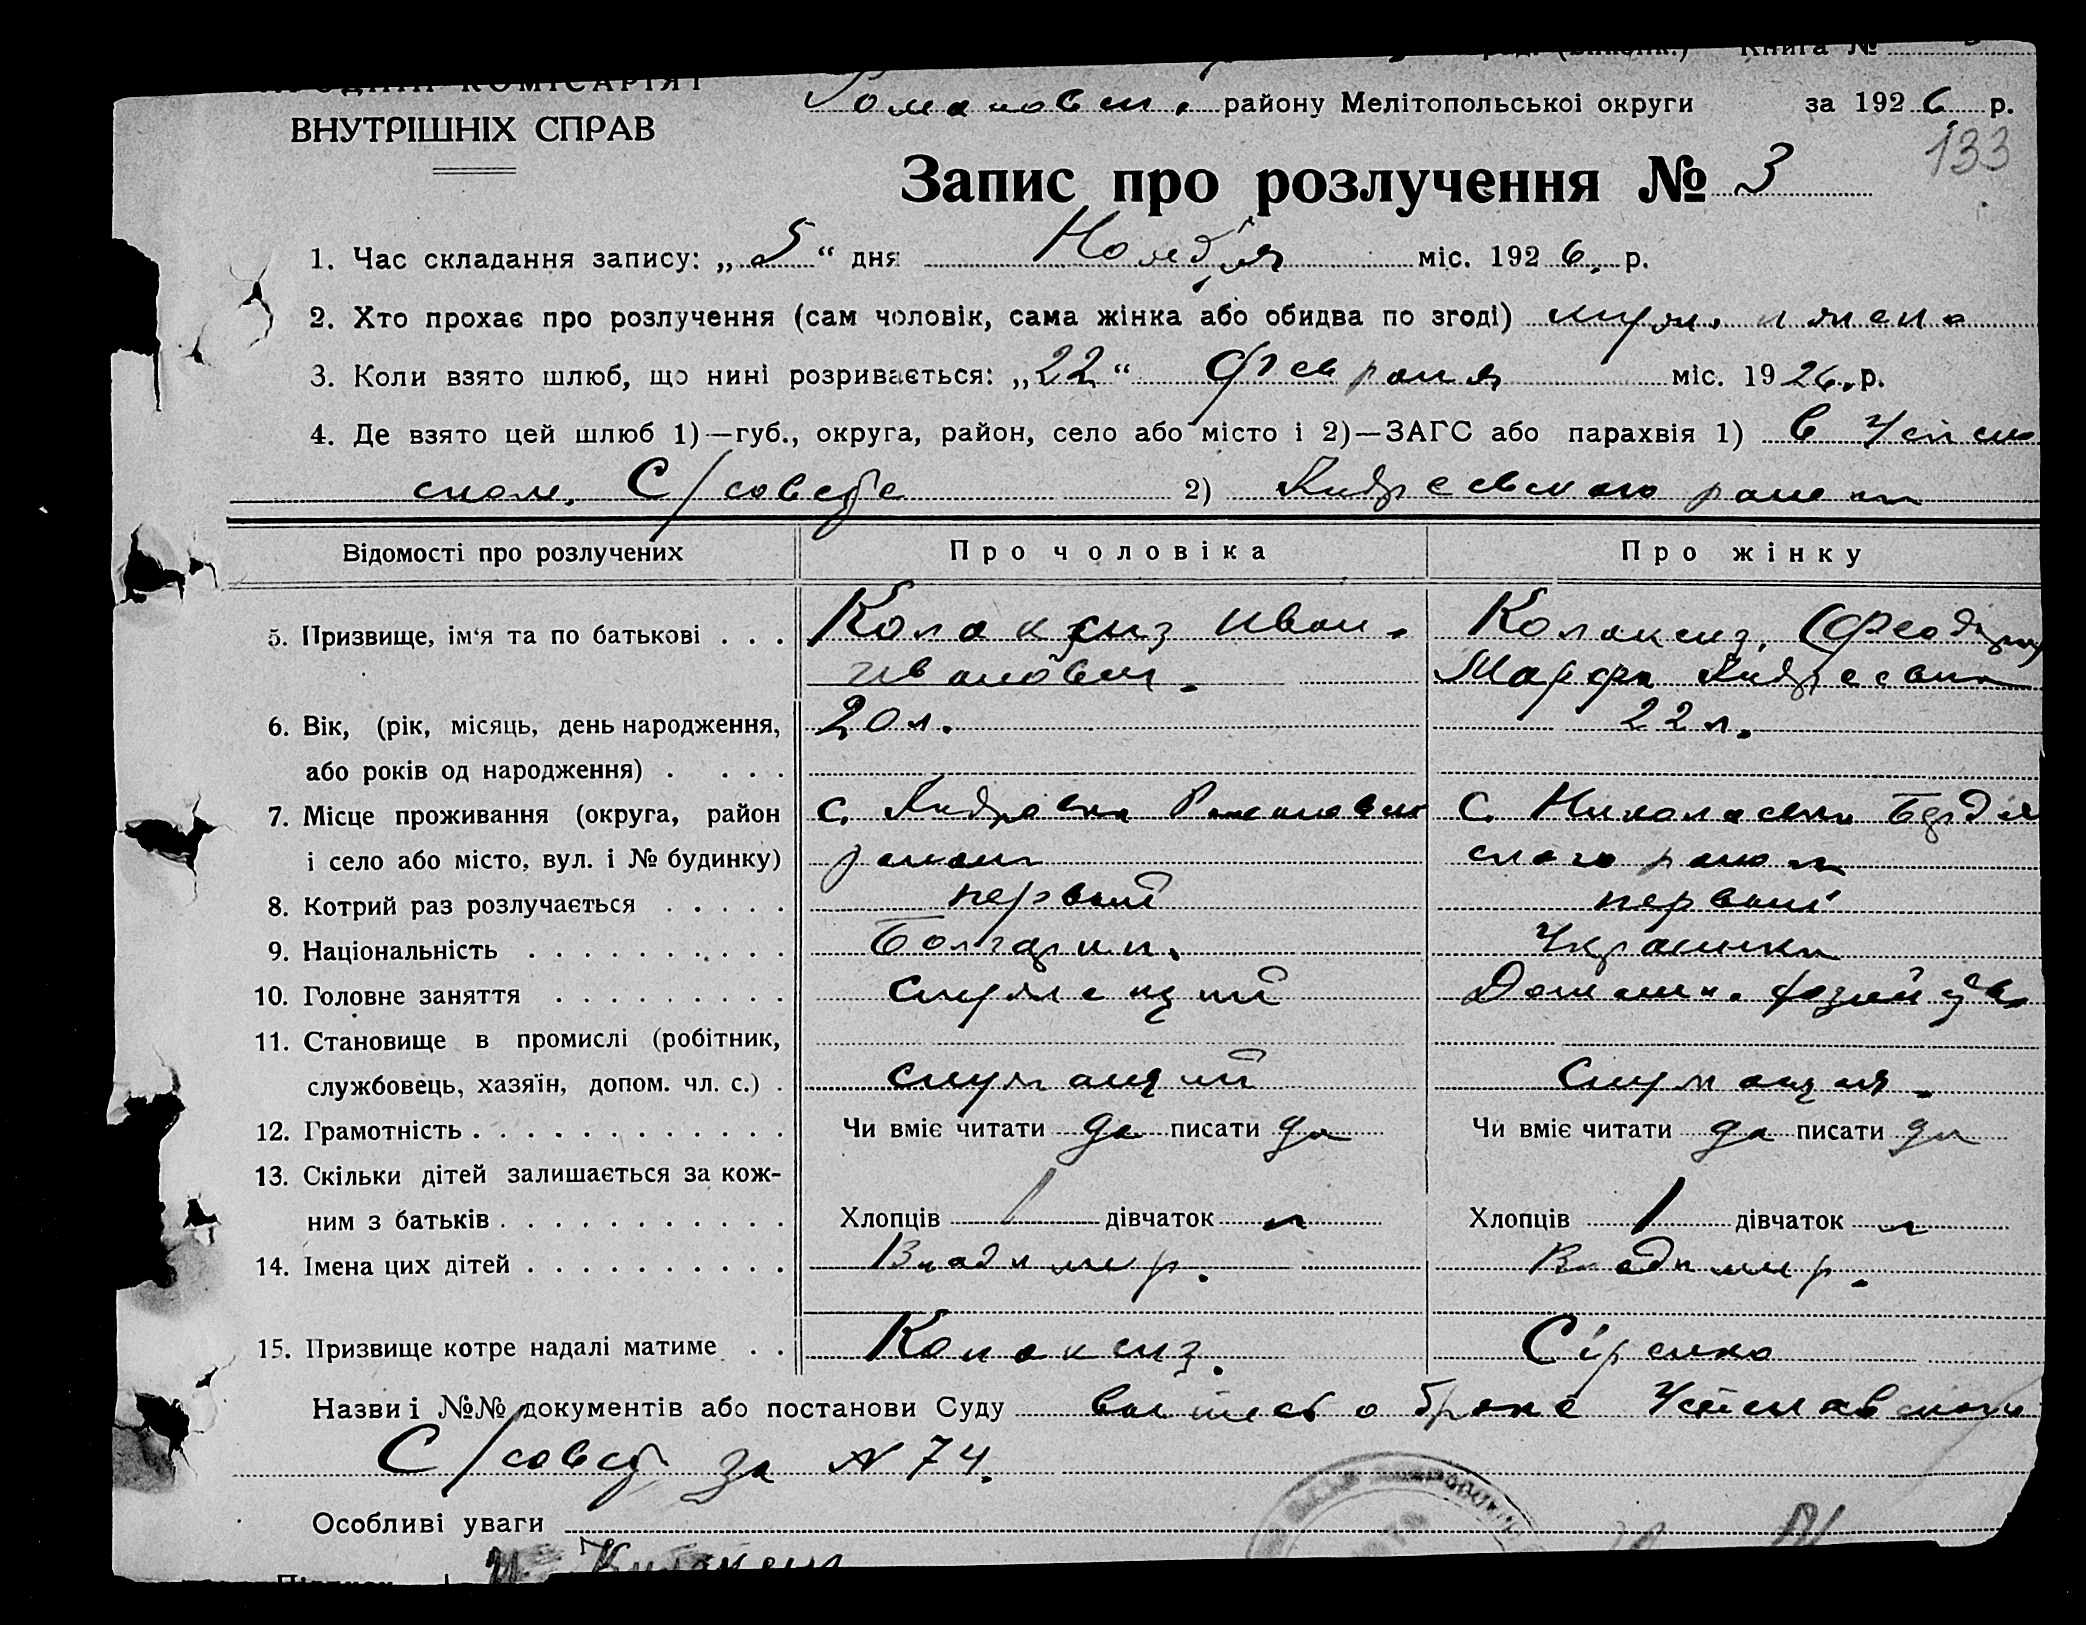 Книга №
НАРОДНІЙ КОМІСАРІЯТ
Романовск. району Мелітопольської округи за 1926 р.
ВНУТРІШНІХ СПРАВ
133
Запис про розлучення № 3
1. Час складання запису: „5“ дня Ноября міс. 1926. р.
2. Хто прохає про розлучення (сам чоловік, сама жінка або обидва по згоді) муж. и жена
3. Коли взято шлюб, що нині розривається: „22“ Февраля міс. 1926. р.
4. Де взято цей шлюб 1)—губ., округа, район, село або місто і 2)—ЗАГС або парахвія 1) в
ском. С/совете 2) Андреевского раиона
Відомості про розлучених Про чоловіка Про жінку
5. Призвище, ім‘я та по батькові . . . Колаксиз Иван. Колаксиз,
Иванович. Марфа Андреевна
6. Вік, (рік, місяць, день народження, 20 л. 22 л.
або років од народження) . . . .
7. Місце проживання (округа, район с. Андровка Романовск С. Николаевка Бердян
і село або місто, вул. і № будинку) раиона ского раиона
8. Котрий раз розлучається . . . . . первый первый
9. Національність . . . . . . . . . . Болгарин. Украинка
10. Головне заняття . . . . . . . . . Служащий Домашн. хозяйств
11. Становище в промислі (робітник,
службовець, хазяїн, допом. чл. с.) . служащий Служащая.
12. Грамотність . . . . . . . . . . . . Чи вміє читати да писати да Чи вміє читати да писати да
13. Скільки дітей залишається за кож-
ним з батьків . . . . . . . . . . . Хлопців 1 дівчаток Хлопців 1 дівчаток
14. Імена цих дітей . . . . . . . . . . Владимир. Владимир.
15. Призвище котре надалі матиме . . Колаксиз. Сіренко
Назви і №№ документів або постанови Суду о браке
С/совет за № 74.
Особливі уваги